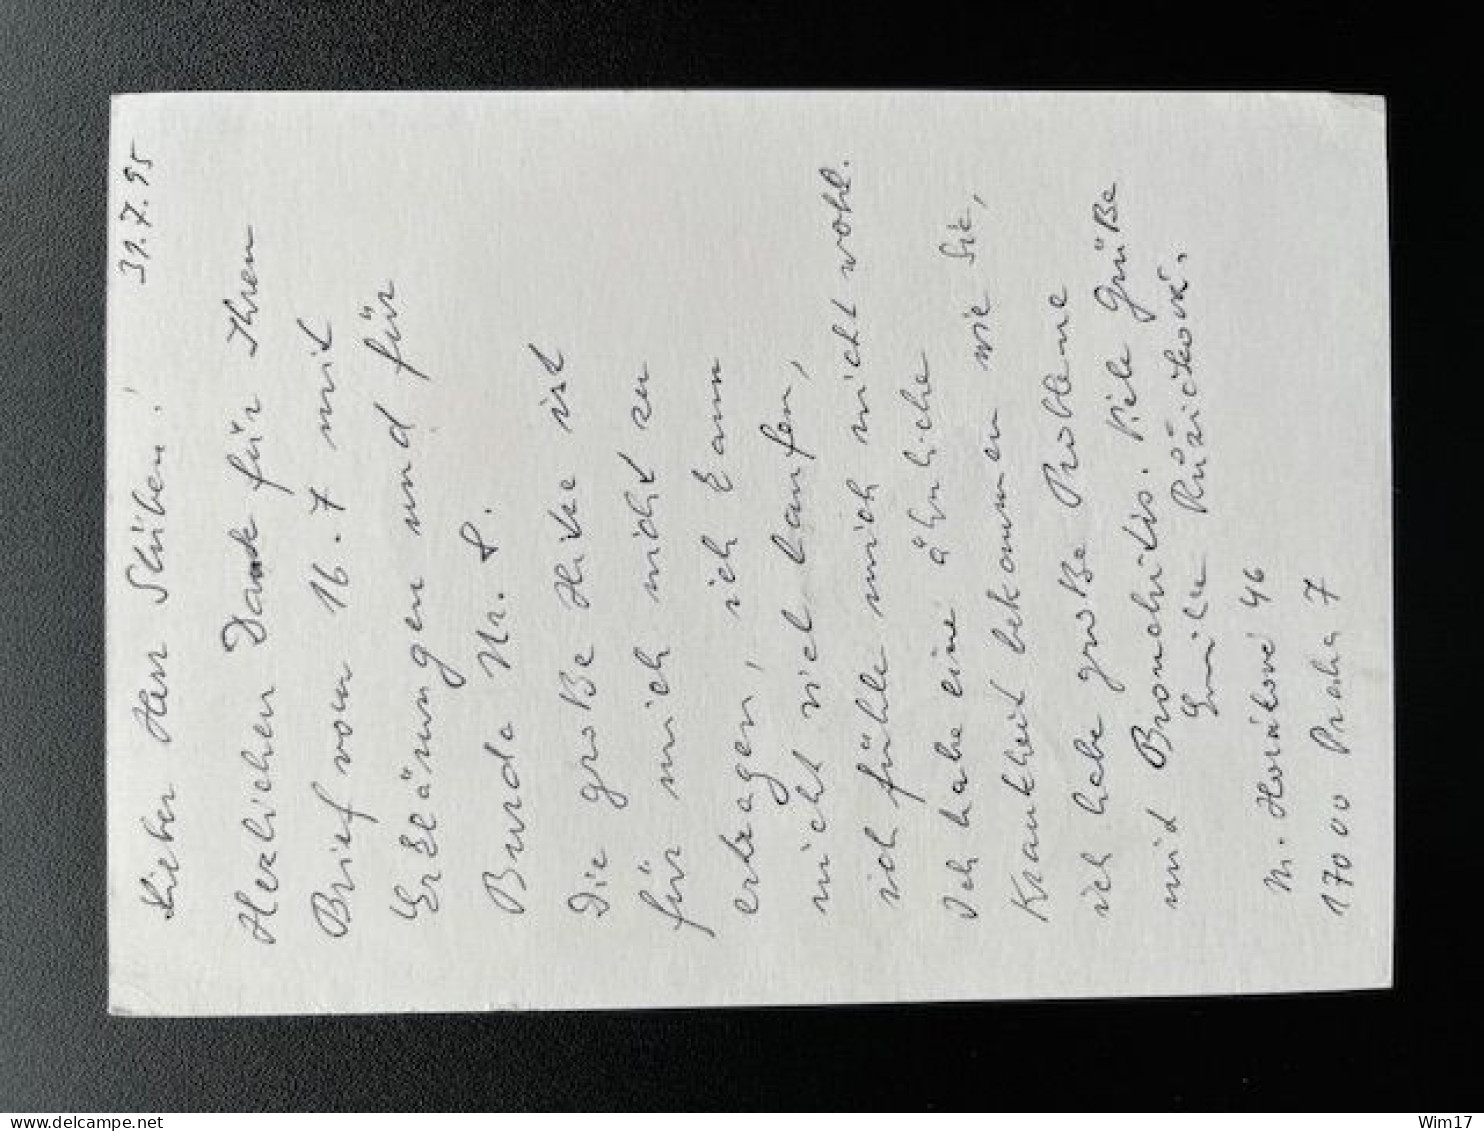 31.7.95
Lieber Herr Stüben!
Herzlichen Dank für Ihren
Brief vom 16.7 mit
Erklärungen und für
Burda Nr. 8.
Die große Hitze ist
für mich nicht zu
ertragen, ich kann
nicht viel laufen,
ich fühle mich nicht wohl.
Ich habe eine ähnliche
Krankheit bekommen wie Sie,
ich habe große Probleme
mit Bronchitis. Viele Grüße
Růžičková.
M. Horákové 46
170 00 Praha 7
Wim17